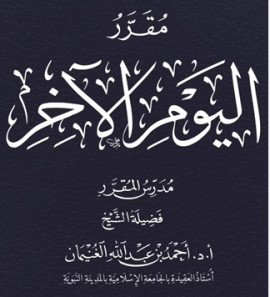 مُقَرَّرُ
اليَوْمِ الآخِرِ
مُدَرِّسُ المُقَرَّرِ
فَضِيلَةُ الشَّيْخِ
أ.د. أَحْمَدُ بْنُ عَبْدِ اللهِ الغُنَيْمَان
أُسْتَاذُ العَقِيدَةِ بِالجَامِعَةِ الإِسْلَامِيَّةِ بِالمَدِينَةِ النَّبَوِيَّةِ